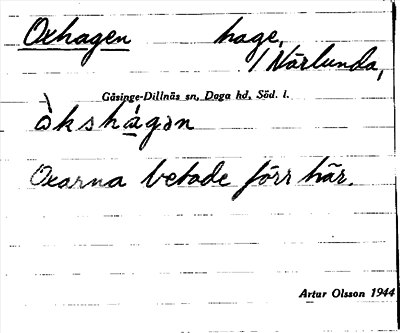 Oxhagen hage,
/ Närlunda,
Gåsinge-Dillnäs sn, Daga hd, Söd. l.
òkshágən
Oxarna betade förr här.
Artur Olsson 1944